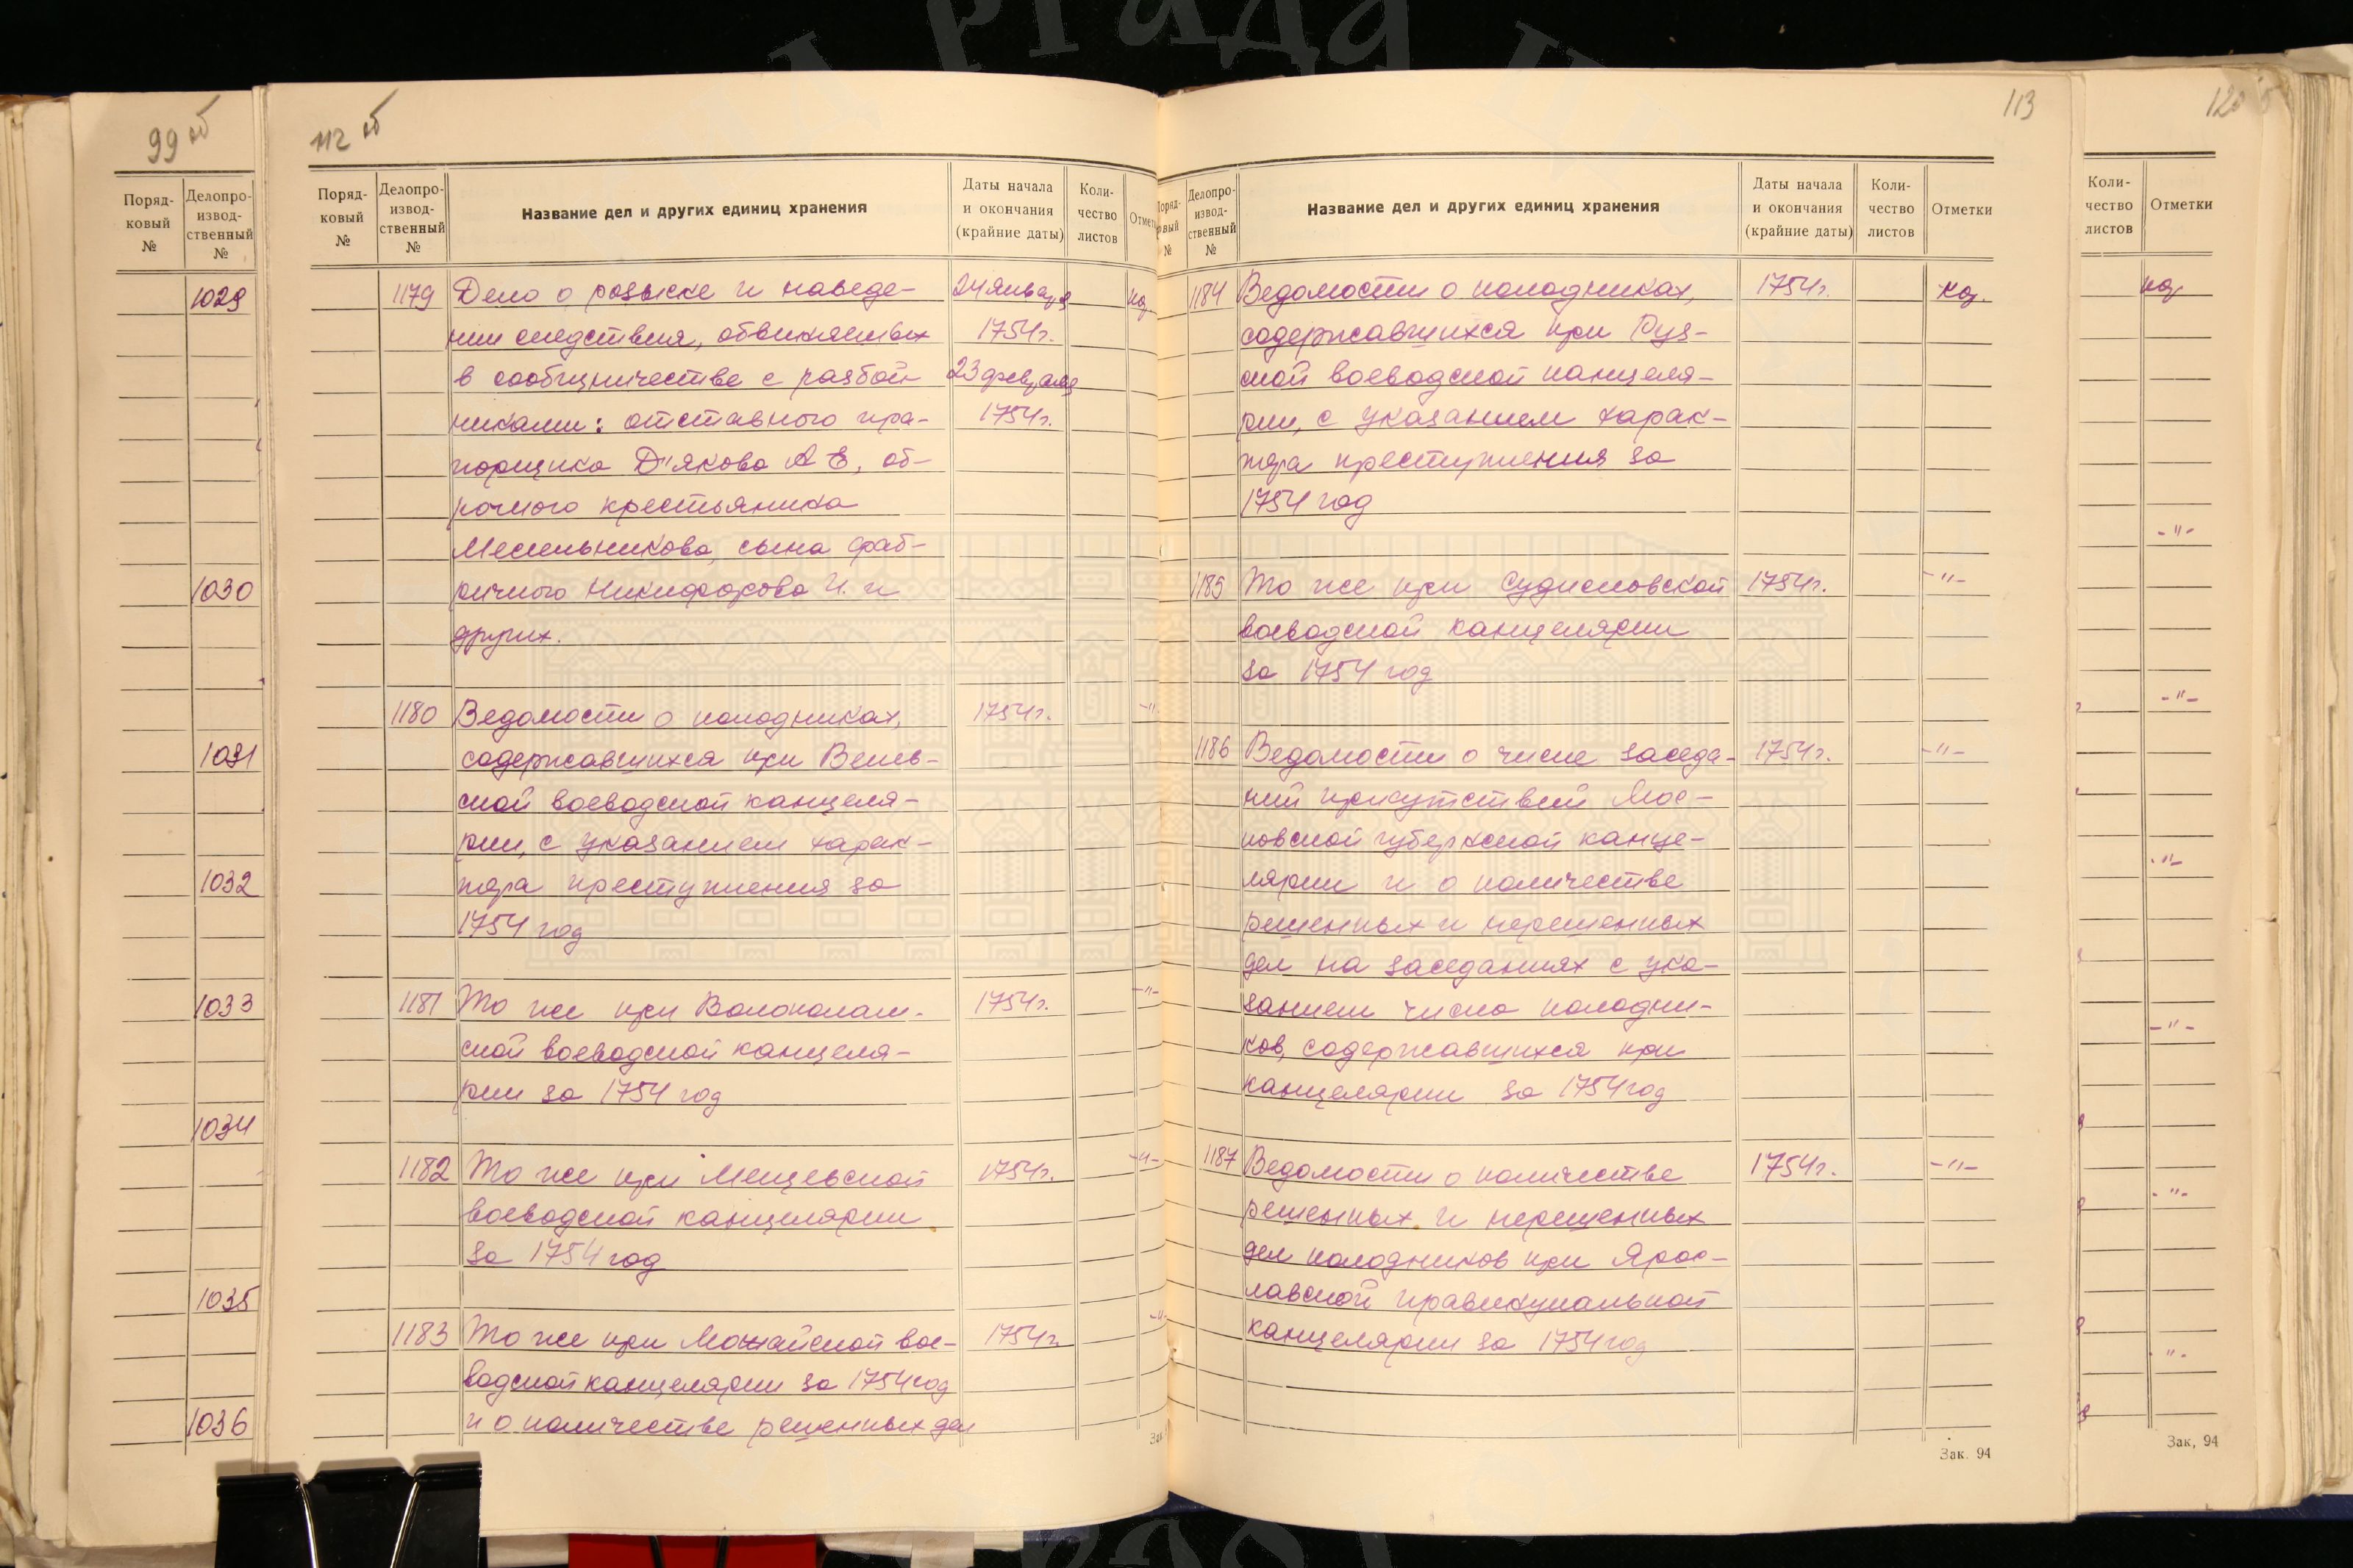 99 об
Поряд-
ковый
№
Делопро-
извод-
ственный
№
1029
1030
1031
1032
1033
1034
1035
1036
112 об
Поряд-
ковый
№
Делопро-
извод-
ственный
№
Название дел и других единиц хранения
Даты начала
и окончания
(крайние даты)
Коли-
чество
листов
1179 Дело о розыске и наведе- 24 января
нии следствия, обвиняемых 1754 г.
в сообщничестве с разбой- 23 февраля
никами: отставного пра- 1754 г.
порщика Д"якова А Е, об-
рочного крестьянина
Месельникова, сына фаб-
ричного Никифорова И. и
других.
1180 Ведомости о колодниках, 1754 г. -"
содержавшихся при Венев-
ской воеводской канцеля-
рии, с указанием харак-
тера преступления за
1754 год
1181 То же при Волоколам- 1754 г. -"-
ской воеводской канцеля-
рии за 1754 год
1182 То же при Мещевской 1754 г. -"-
воеводской канцелярии
за 1754 год
1183 То же при Можайской вое- 1754 г. -"-
водской канцелярии за 1754 год
и о количестве решенных дел
113
Делопро-
извод-
ственный
№
Название дел и других единиц хранения
Даты начала
и окончания
(крайние даты)
Коли-
чество
листов
Отметки
1184 Ведомости о колодниках, 1754 г.
содержавшихся при Руз-
ской воеводской канцеля-
рии, с указанием харак-
тера преступления за
1754 год
1185 То же при Судисловской 1754 г. -"-
воеводской канцелярии
за 1754 год
1186 Ведомости о числе заседа- 1754 г. -"-
ний присутствий Мос-
ковской губернской канце-
лярии и о количестве
решенных и нерешенных
дел на заседаниях с ука-
занием числа колодни-
ков, содержавшихся при
канцелярии за 1754 год
1187 Ведомости о количестве 1754 г. -"-
решенных и нерешенных
дел колодников при Ярос-
лавской провинциальной
канцелярии за 1754 год
Зак. 94
Коли-
чество
листов
Отметки
-"-
-"-
-"-
-"-
-"-
-"-
Зак, 94